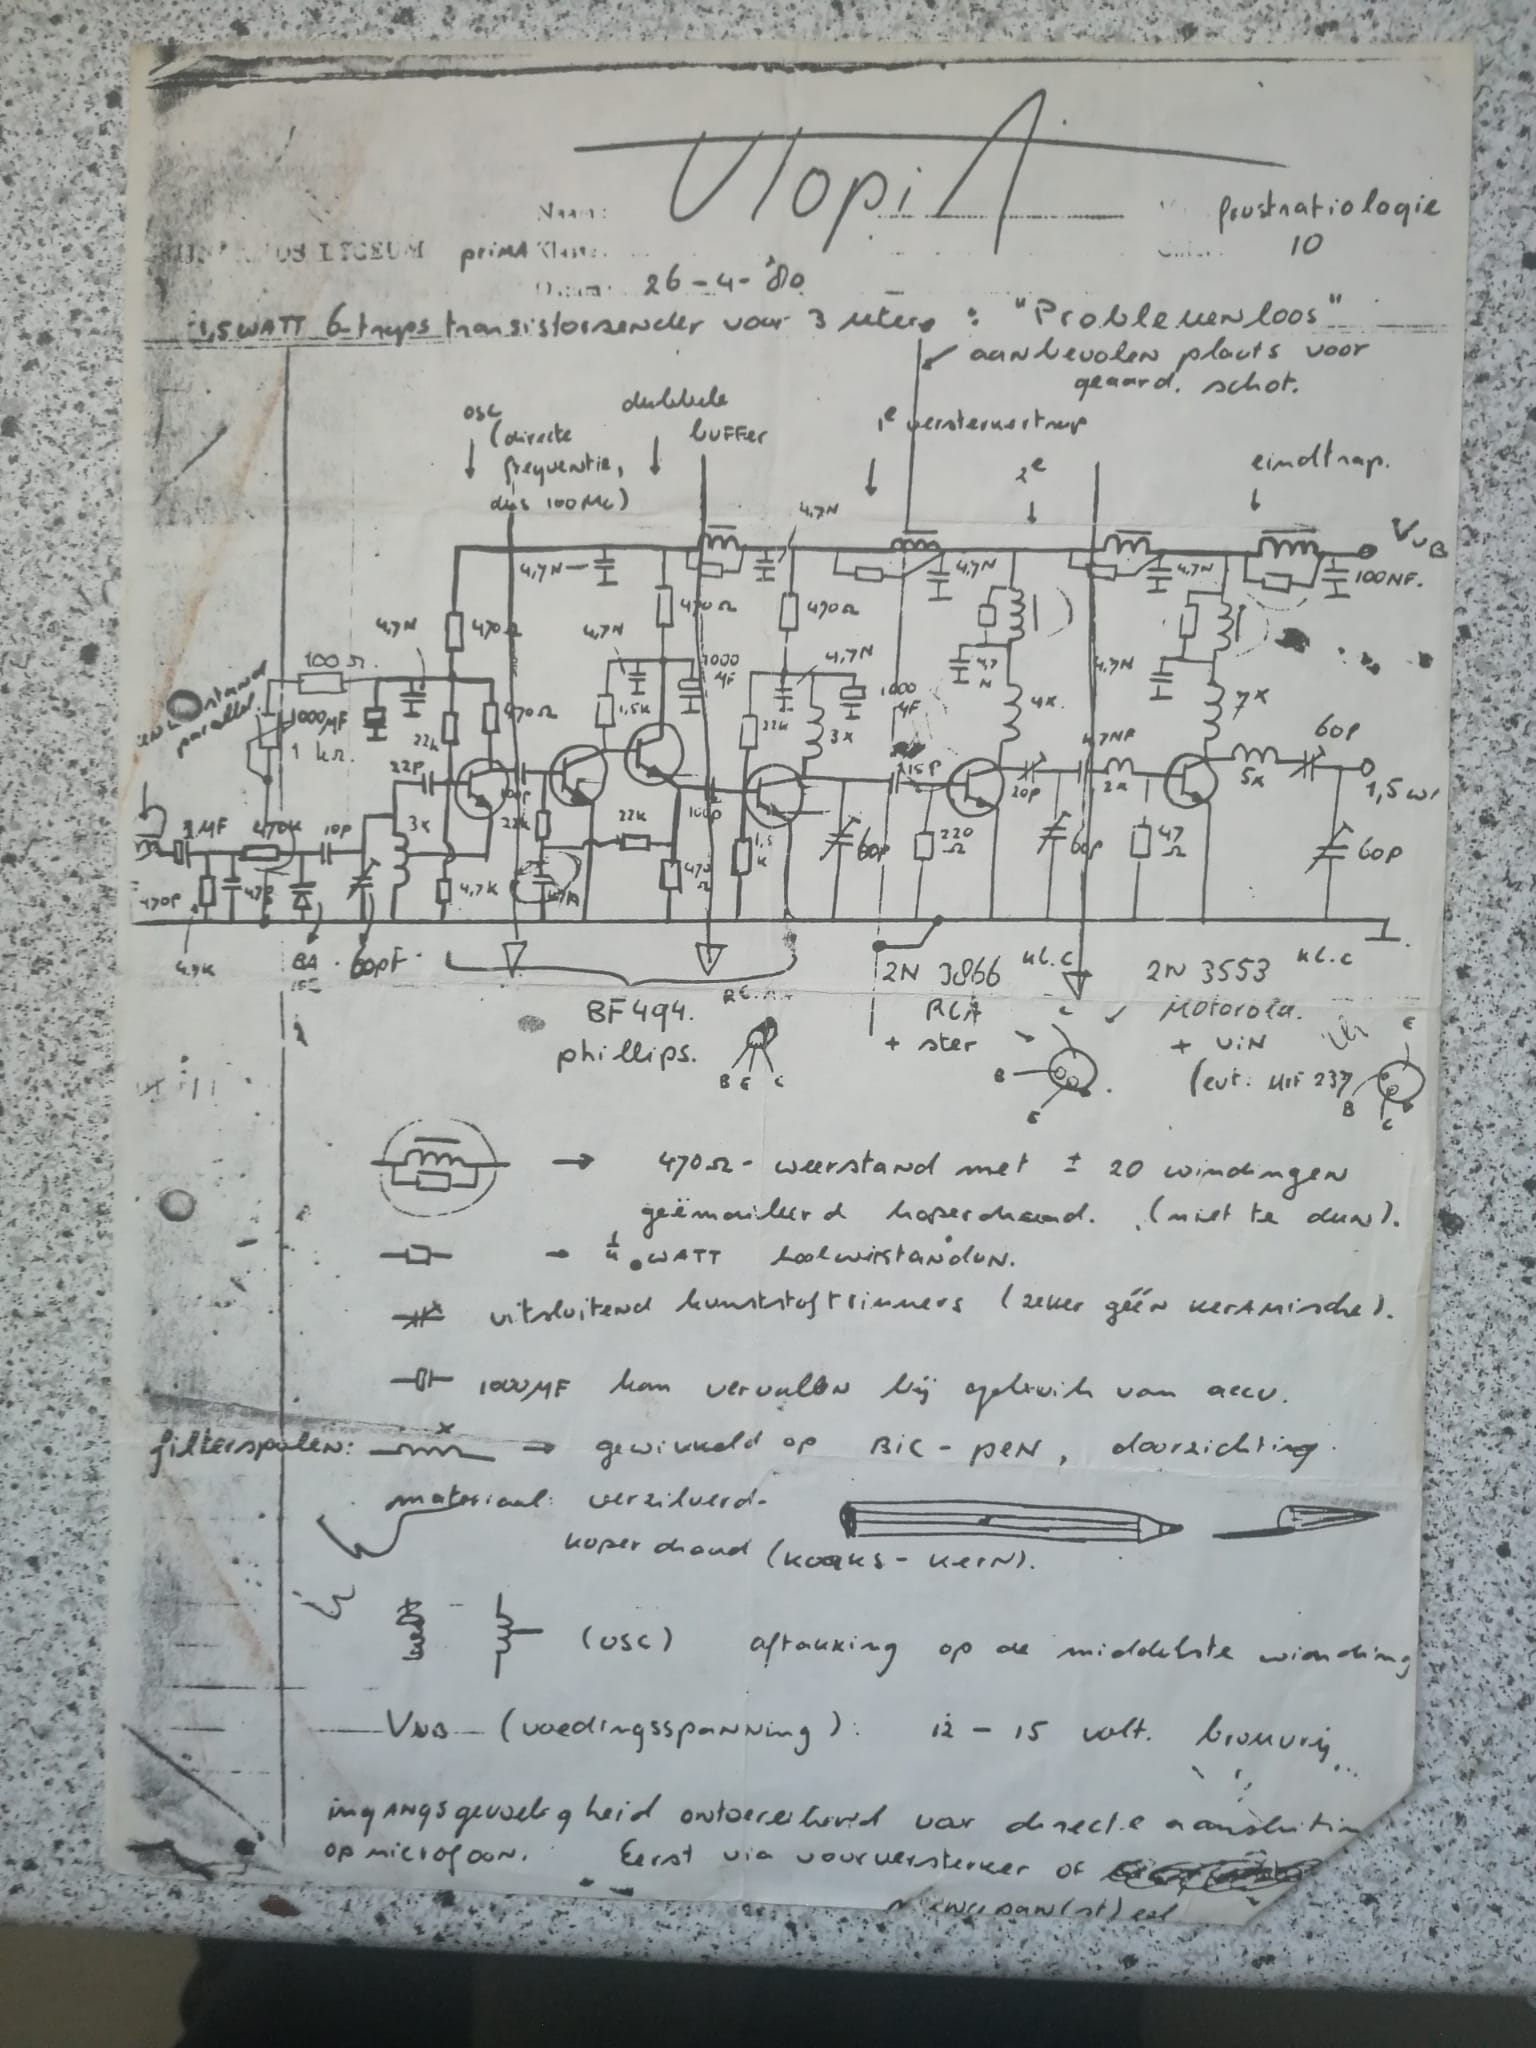 UtopiA
Naam:
frustratiologie
LYCEUM
prima
Klas:
10
Datum:
26-4-'80
1,5WATT 6-traps transistorzender voor 3 meter: "Problemenloos"
aanbevolen plaats voor
geaard. schot.
osc
(directe
frequentie,
dus 100Mc)
dubbele
buffer
1e versterkertrap
2e
eindtrap.
VvB
4,7N
4,7N
4,7N
4,7N
100NF.
470Ω
470Ω
470Ω
4,7N
4,7N
4,7N
4,7N
4,7N
100Ω
1000MF
1 kΩ.
parallel
22k
470Ω
1,5k
1000
MF
22k
3x
1000
MF
4x
4,7NF
7x
60P
22P
100P
100P
15P
20P
2x
5x
1,5W
1MF
470k
10P
3x
22k
22k
1,5
k
60P
220
Ω
60P
47
Ω
60P
470P
47P
4,7K
470
Ω
4,7K
BA
60pF
BF494.
phillips.
B E C
2N 3866
KL.C
RCA
+ ster
C
B
E
2N 3553
KL.C
Motorola.
+ vin
(evt. MRF 237)
E
B
C
470Ω-weerstand met ± 20 windingen
geëmailleerd koperdraad. (niet te dun).
1/4 WATT koolweerstanden.
uitsluitend kunststoftrimmers (zeker géén keramische).
1000MF kan vervallen bij gebruik van accu.
filterspoelen: x gewikkeld op BIC-pen, doorzichtig.
materiaal: verzilverd-
koperdraad (koaks-kern).
(osc) aftakking op de middelste winding
VvB (voedingsspanning): 12 - 15 volt. bromvrij...
ingangsgevoeligheid ontoereikend voor directe aansluitin
op microfoon. Eerst via voorversterker of